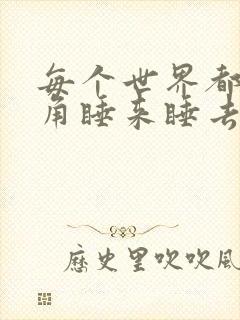 每个世界都
角睡来睡去
历史里吹吹风